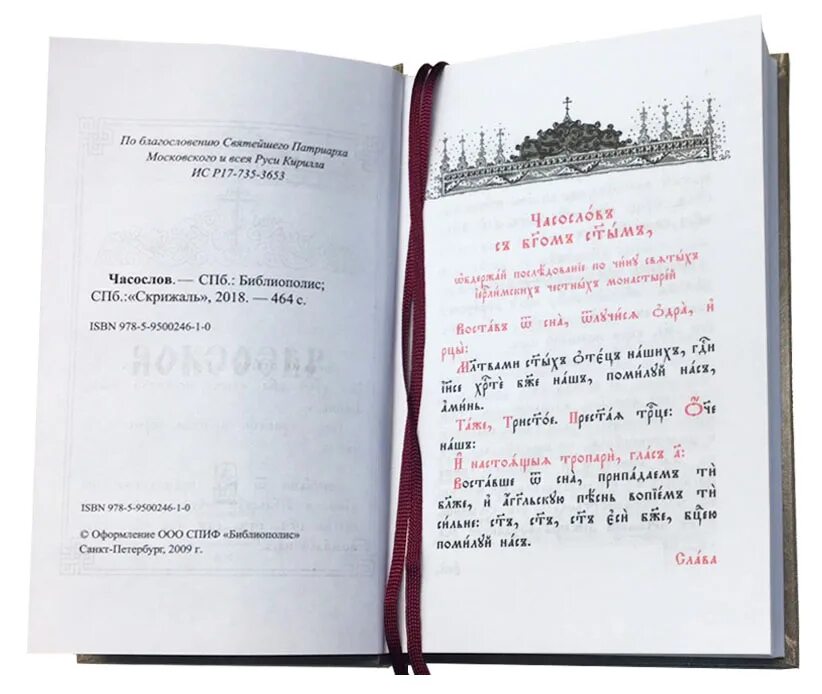 По благословению Святейшего Патриарха
Московского и всея Руси Кирилла
ИС Р17-735-3653
Часослов. — СПб.: Библиополис;
СПб.:«Скрижаль», 2018. — 464 с.
ISBN 978-5-9500246-1-0
ISBN 978-5-9500246-1-0
© Оформление ООО СПИФ «Библиополис»
Санкт-Петербург, 2009 г.
Часосло́въ
съ бг҃омъ ст҃ы́мъ,
ѡ҆держа́й послѣ́дованїе по чи́нꙋ свѧты́хъ
і҆ерⷭ҇ли́мскихъ че́стныхъ монастыре́й
Воста́въ ѿ сна̀, ѿлꙋчи́сѧ ѻ҆дра̀, и҆
рцы̀:
Мл҃твами ст҃ы́хъ ѻ҆те́цъ на́шихъ, гдⷭ҇и
і҆и҃се хрⷭ҇тѐ бж҃е на́шъ, поми́лꙋй на́съ,
а҆ми́нь.
Та́же, Трист҃о́е. Прест҃а́ѧ трⷪ҇це: Ѻ҆́ч҃е
на́шъ:
И҆ настоѧ́щыѧ тропари̑, гла́съ а҃:
Воста́вше ѿ сна̀, припа́даемъ тѝ
бл҃же, и҆ а҆́гг҃льскꙋю пѣ́снь вопїе́мъ тѝ
си́льне: ст҃ъ, ст҃ъ, ст҃ъ є҆сѝ бж҃е, бцⷣею
поми́лꙋй на́съ.
Сла́ва